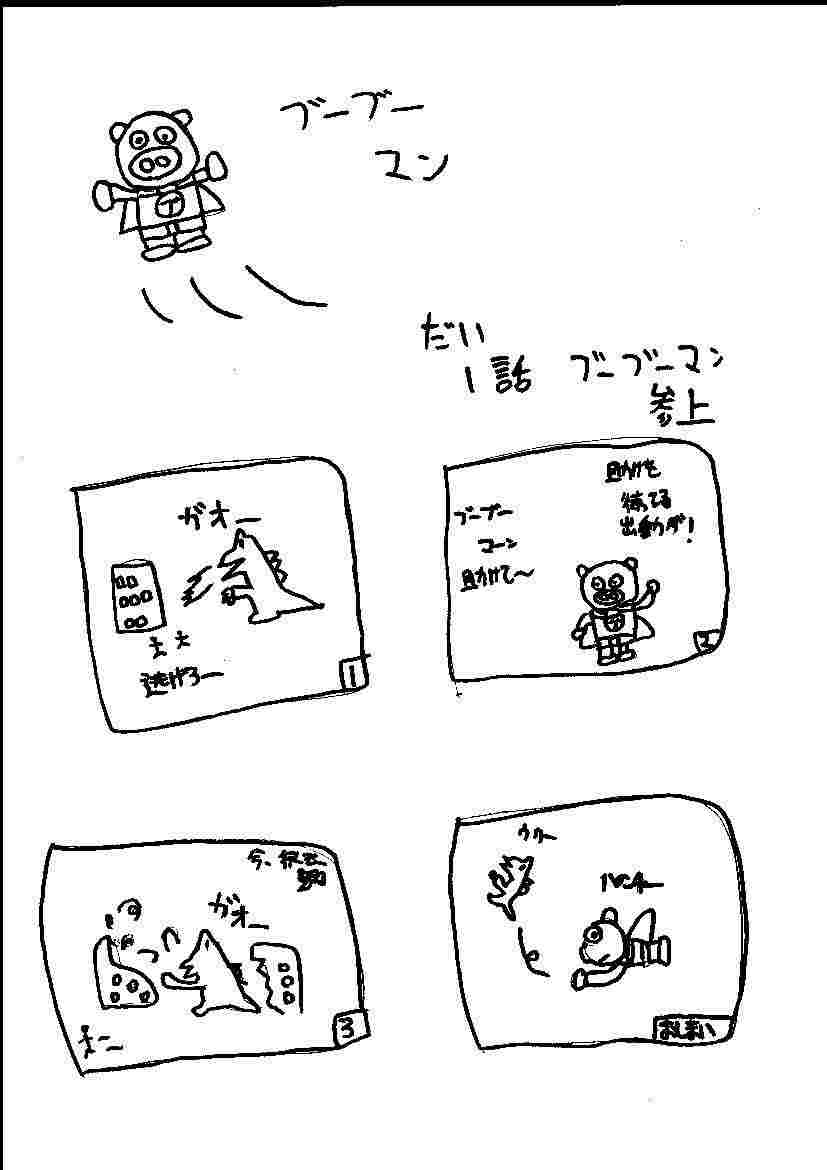 ブーブー
マン
だい
1話 ブーブーマン
参上
ガオー
逃げろー
1
ブーブー
マーン
助けて〜
助けを
待てる
出動ダ!
2
今、
ガオー
3
ウワー
パンチー
おしまい